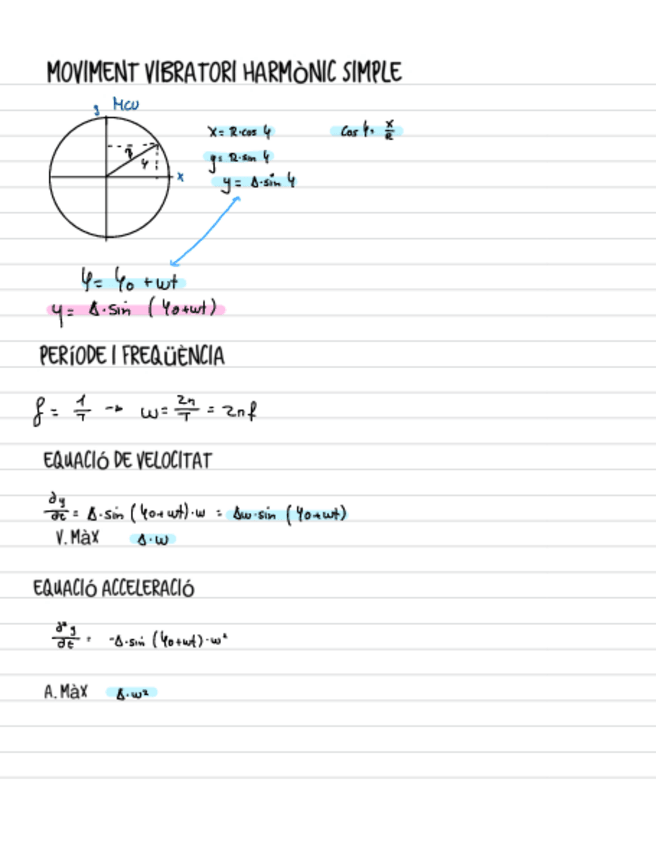 MOVIMENT VIBRATORI HARMÒNIC SIMPLE
y MCU
x = R·cos φ cos φ = x/R
y = R·sin φ
R
φ
x
y = A·sin φ
φ = φ0 + wt
y = A·sin (φ0+wt)
PERÍODE I FREQÜÈNCIA
f = 1/T → w = 2π/T = 2πf
EQUACIÓ DE VELOCITAT
∂y/∂t = A·sin (φ0+wt)·w = Aw·sin (φ0+wt)
V. MÀX A·w
EQUACIÓ ACCELERACIÓ
∂²y/∂t = -A·sin (φ0+wt)·w²
A. MÀX A·w²